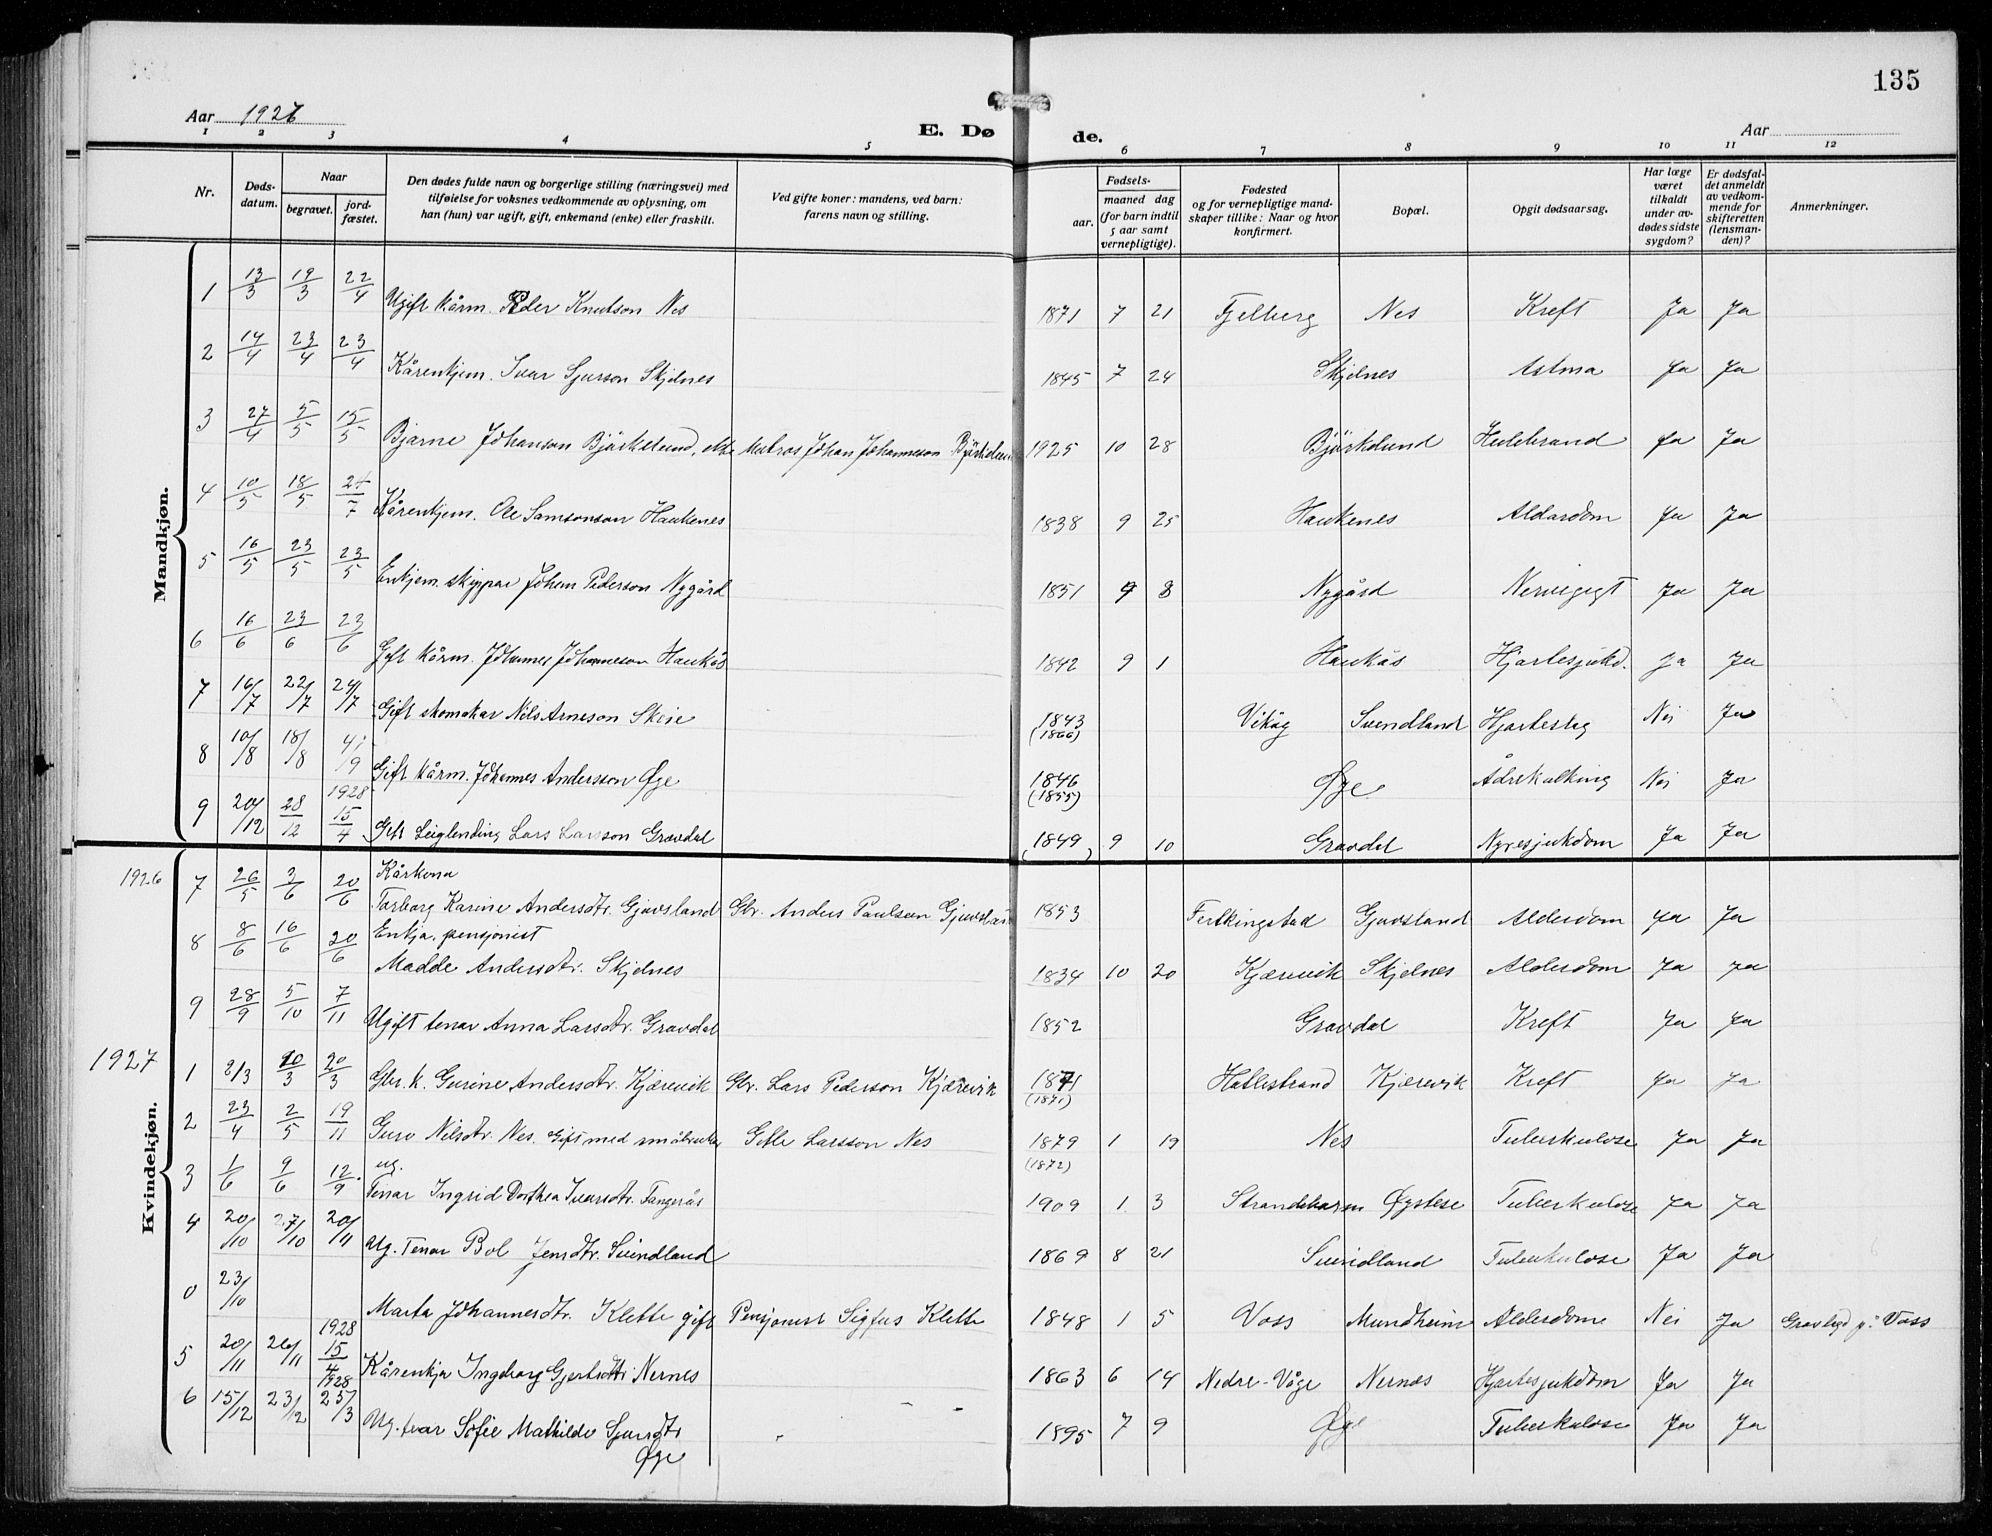 135
Aar 1927
E. Dø
de.
Aar
1 2 3 4 5 6 7 8 9 10 11 12
Nr.
Døds-
datum.
Naar
begravet.
jord-
fæstet.
Den dødes fulde navn og borgerlige stilling (næringsvei) med
tilføielse for voksnes vedkommende av oplysning, om
han (hun) var ugift, gift, enkemand (enke) eller fraskilt.
Ved gifte koner: mandens, ved barn:
farens navn og stilling.
Fødsels-
aar.
maaned dag
(for barn indtil
5 aar samt
vernepligtige).
Fødested
og for vernepligtige mand-
skaper tillike: Naar og hvor
konfirmert.
Bopæl.
Opgit dødsaarsag.
Har læge
været
tilkaldt
under av-
dødes sidste
sygdom?
Er dødsfal-
det anmeldt
av vedkom-
mende for
skifteretten
(lensman-
den)?
Anmerkninger.
Mandkjøn.
1 13/3 19/3 22/4 Ugift kårm. Peder Knutson Nes 1871 7 21 Fjelberg Nes Kreft Ja Ja
2 14/4 23/4 23/4 Kårenkjem. Ivar Sjurson Skjelnes 1845 7 24 Skjelnes Astma Ja Ja
3 27/4 5/5 15/5 Bjarne Johanson Björkelund, ekte Matros Johan Johanneson Björkelund 1925 10 28 Björkelund Huldebrand Ja Ja
4 10/5 18/5 24/7 Kårenkjem. Ole Samsonson Haukenes 1838 9 25 Haukenes Aldersdom Ja Ja
5 16/5 23/5 23/5 Enkjem. skippar Johan Pederson Nygård 1851 9 8 Nygård Nervegigt Ja Ja
6 16/6 23/6 23/6 Gift kårm. Johannes Johanneson Haukås 1842 9 1 Haukås Hjartesjukd. Ja Ja
7 16/7 22/7 24/7 Gift skomakar Nils Arneson Skeie 1843 (1866) Vikøy Svendland Hjarteslag Nei Ja
8 10/8 18/8 4/9 Gift kårm. Johannes Andersson Øye 1846 (1855) Øye Ådrekalking Nei Ja
9 20/12 28/12 1928 15/4 Gift Leiglending Lars Larsson Gravdal (1849) 9 10 Gravdal Nyresjukdom Ja Ja
Kvindekjøn.
1926
Kårkona
7 26/5 3/6 20/6 Torborg Karine Andersdtr. Gjuvsland Gbr. Anders Paulson Gjuvsland 1853 Ferkingstad Gjuvsland Aldersdom Ja Ja
Enkja, pensjonist
8 8/6 16/6 20/6 Madde Andersdtr. Skjelnes 1834 10 20 Kjærevik Skjelnes Aldersdom Ja Ja
9 28/9 5/10 7/11 Ugift tenar Anna Larsdtr. Gravdal 1852 Gravdal Kreft Ja Ja
1927
1 8/3 20/3 20/3 Gbr. k. Gurine Andersdtr. Kjærevik Gbr. Lars Pederson Kjærevik 1871 (1871) Hatlestrand Kjærevik Kreft Ja Ja
2 23/4 2/5 19/11 Guro Nilsdtr. Nes. Gift med småbruker Gitle Larsson Nes 1879 (1872) 1 19 Nes Tuberkulose Ja Ja
ug.
3 1/6 9/6 12/9 Tenar Ingrid Dorthea Ivarsdtr. Tangerås 1909 1 3 Strandebarm Øystese Tuberkulose Ja Ja
4 20/10 27/10 20/11 Ug. Tenar Bol Jensdtr. Svindland 1869 8 21 Svindland Tuberkulose Ja Ja
0 23/10 Marta Johannesdtr. Klette gift Pensjonist Sigfus Klette 1848 1 5 Voss Mundheim Aldersdom Nei Ja Gravlagd på Voss
5 20/11 26/11 1928 15/4 Kårenkja Ingeborg Gjertsdtr. Nernes 1863 6 14 Nedre-Våge Nernes Hjartesjukdom Ja Ja
6 15/12 23/12 1928 25/3 Ug. tvar Sofie Mathilde Sjursdtr. 1895 7 9 Øye Tuberkulose Ja Ja
Øye